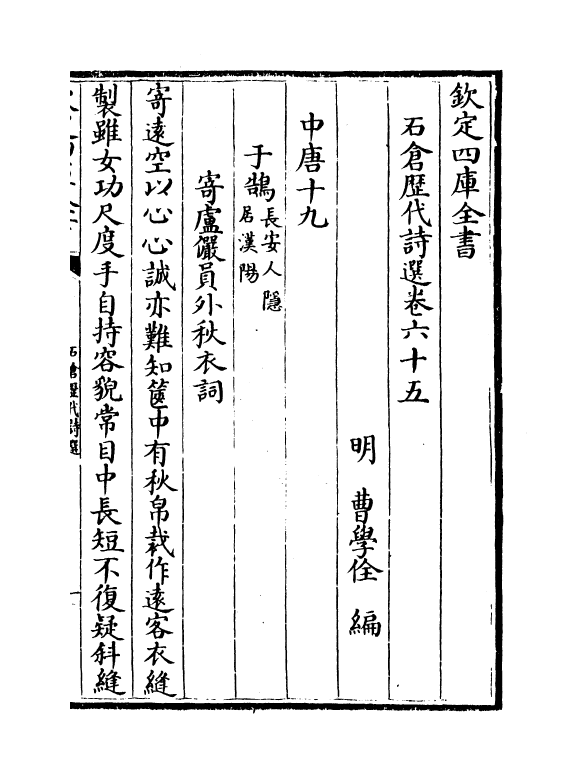 欽定四庫全書
石倉歴代詩選卷六十五
明　曹學佺　編
中唐十九
于鵠長安人隱
居漢陽
寄盧儼員外秋衣詞
寄遠空以心心誠亦難知篋中有秋帛裁作遠客衣縫
製雖女功尺度手自持容貌常目中長短不復疑斜縫
石倉歷代詩選
一